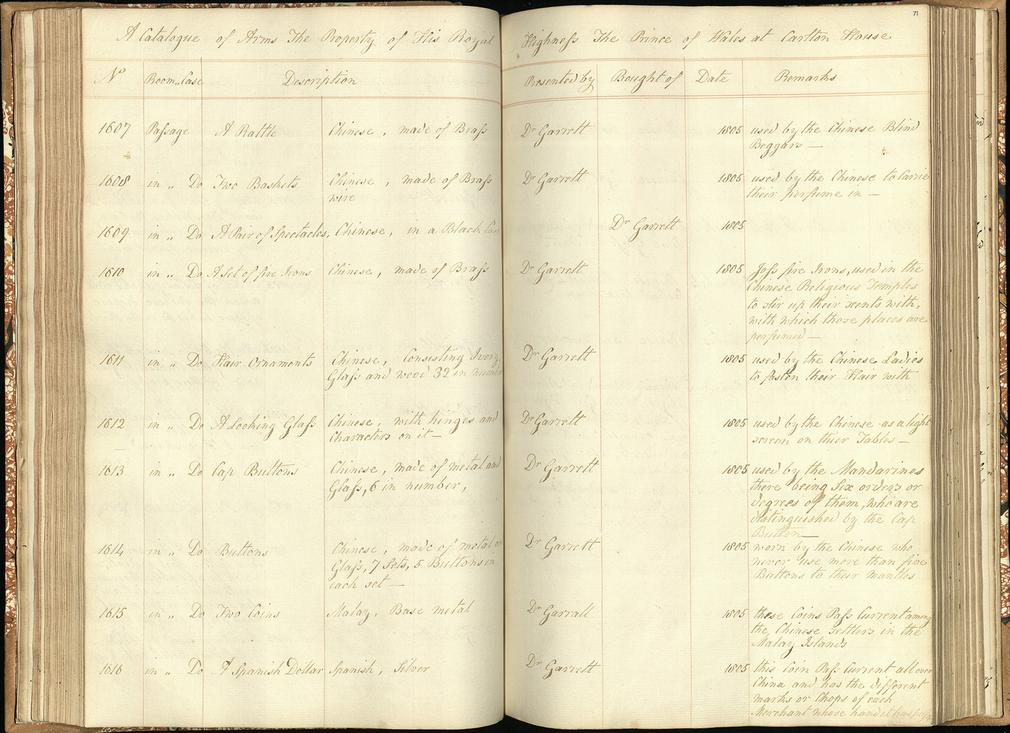 71
A Catalogue of Arms The Property of His Royal Highneſs The Prince of Wales at Carlton House
No Room..Case Description Presented by Bought of Date Remarks
1607 Paſsage A Rattle Chinese, made of Braſs Dr Garrett 1805 used by the Chinese Blind
Beggars —
1608 in „ Do Two Baskets Chinese, made of Braſs Dr Garrett 1805 used by the Chinese to Carrie
wire their perfume in —
1609 in „ Do A Pair of Spectacles, Chinese, in a Black Dr Garrett 1805
1610 in „ Do A Set of fire Irons Chinese, made of Braſs Dr Garrett 1805 Joſs fire Irons, used in the
Chinese Religious Temples
to stir up their scents with,
with which those places are
perfumed —
1611 in „ Do Hair Ornaments Chinese, Consisting Ivory Dr Garrett 1805 used by the Chinese Ladies
Glaſs and wood 32 in number to fasten their Hair with
1612 in „ Do A Looking Glaſs Chinese, with hinges and Dr Garrett 1805 used by the Chinese as a light
Characters on it — screen on their Tables —
1613 in „ Do Cap Buttons Chinese, made of metal and Dr Garrett 1805 used by the Mandarines
Glaſs, 6 in number, there being Six orders or
degrees of them, who are
distinguished by the Cap
Button —
1614 in „ Do Buttons Chinese, made of metal or Dr Garrett 1805 worn by the Chinese who
Glaſs, 7 Sets, 5 Buttons in never use more than five
each set — Buttons to their mantles
1615 in „ Do Two Coins Malay, Base metal Dr Garratt 1805 these Coins Paſs Current among
the Chinese Settlers in the
Malay Islands
1616 in „ Do A Spanish Dollar Spanish, Silver Dr Garrett 1805 this Coin Paſs Current all over
China and has the different
marks or Chops of each
Merchant whose hand it has